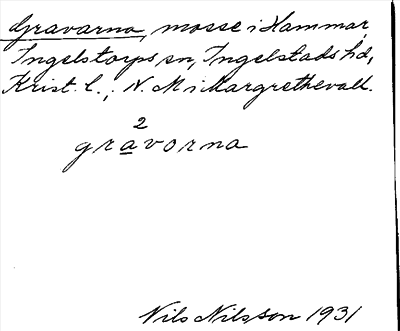 Gravarna, mosse i Hammar,
Ingelstorps sn, Ingelstads hd,
Krist. l., N. M i Margrethevall.
2
gravorna
Nils Nilsson 1931